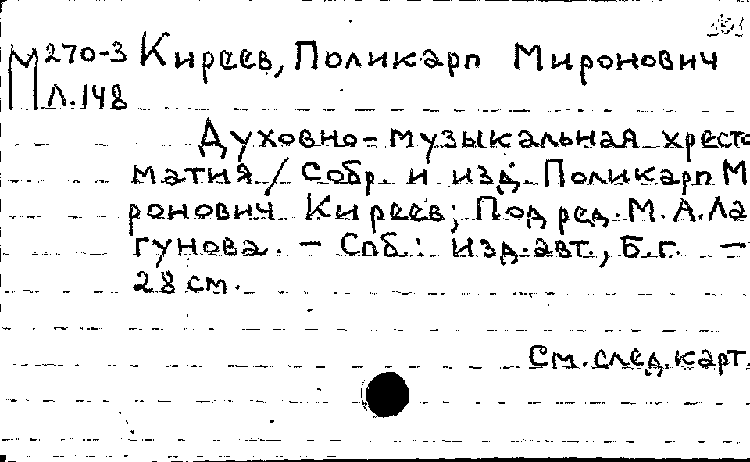 М 270-3 Киреев, Поликарп Миронович
Л.148
Духовно-музыкальная хресто
матия / Собр. и изд. Поликарп М
ронович Киреев; Под ред. М. А. Ла
гунова. - Спб.: изд. авт., Б.г. -
28 см.
См. след. карт.